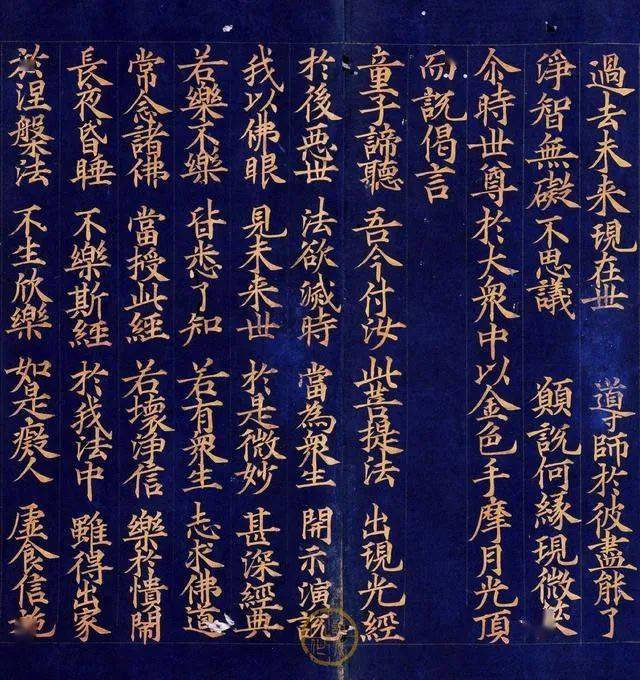 過去未来現在世 導師於彼盡能了
淨智無礙不思議 願說何緣現微笑
尒時世尊於大衆中以金色手摩月光頂
而說偈言
童子諦聽 吾今付汝 此菩提法 出現光經
於後惡世 法欲滅時 當為衆生 開示演說
我以佛眼 見未来世 於是微妙 甚深經典
若樂不樂 皆悉了知 若有衆生 志求佛道
常念諸佛 當授此經 若壞淨信 樂於憒閙
長夜昏睡 不樂斯經 於我法中 雖得出家
於涅槃法 不生欣樂 如是癡人 虛食信施